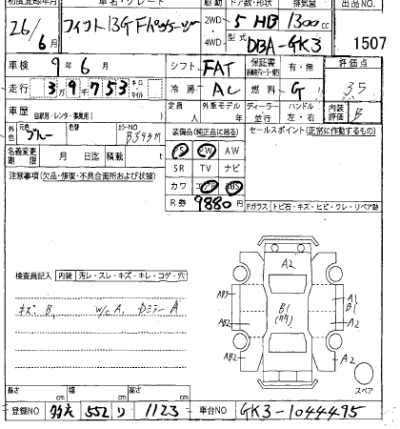 初度登録年月 車名・グレード 駆動 ドア数・形状 排気量 出品NO.
26/6月 フィット 13G Fパッケージ 2WD 5 HB 1300cc
4WD 型式 DBA-GK3 1507
車検 9年 6月 シフト FAT 保証書 有・無 評価点
走行 39,753 キロ マイル 冷房 AC 燃料 G 3.5
車歴 自家用・レンタ・事業用( ) 定員 人 外車モデル 年 ディーラー 並行 ハンドル 左・右 内装評価 B
外色 元色 ブルー 色替 カラーNO B593M 装備品(純正品に限る) セールスポイント(正常に作動するもの)
名義変更期限 月 日迄 積載 t PS PW AW
注意事項(欠品・修復・不具合箇所および状態) SR TV ナビ
カワ エアB ABS
R券 9880円 Fガラス トビ石・キズ・ヒビ・ワレ・リペア跡
A2
検査員記入 内装 汚レ・スレ・キズ・キレ・コゲ・穴
AB3 A1
キズ B, W/C A, Dミラー A B1 B1
AB2 A2
AB2 A2
A2
スペア
長さ cm 幅 cm 高さ cm
登録NO 552 り 1123 車台NO GK3-1044495